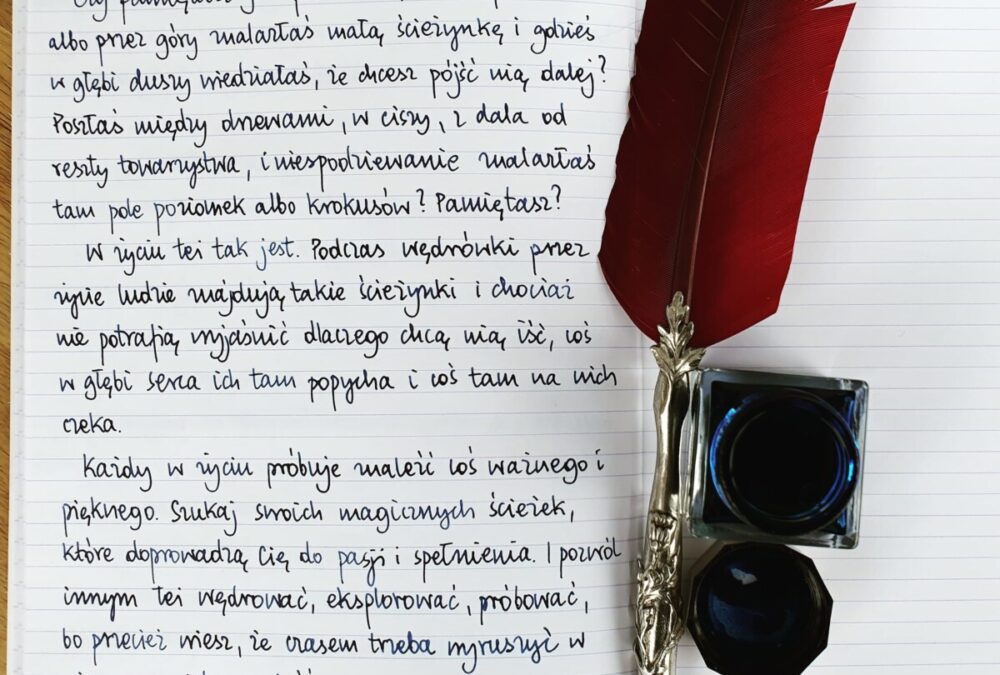 albo przez góry znalazłaś małą ścieżynkę i gdzieś
w głębi duszy wiedziałaś, że chcesz pójść nią dalej?
Poszłaś między drzewami, w ciszy, z dala od
reszty towarzystwa, i niespodziewanie znalazłaś
tam pole poziomek albo krokusów? Pamiętasz?
W życiu też tak jest. Podczas wędrówki przez
życie ludzie znajdują takie ścieżynki i chociaż
nie potrafią wyjaśnić dlaczego chcą nią iść, coś
w głębi serca ich tam popycha i coś tam na nich
czeka.
Każdy w życiu próbuje znaleźć coś ważnego i
pięknego. Szukaj swoich magicznych ścieżek,
które doprowadzą Cię do pasji i spełnienia. I pozwól
innym też wędrować, eksplorować, próbować,
bo przecież wiesz, że czasem trzeba wyruszyć w